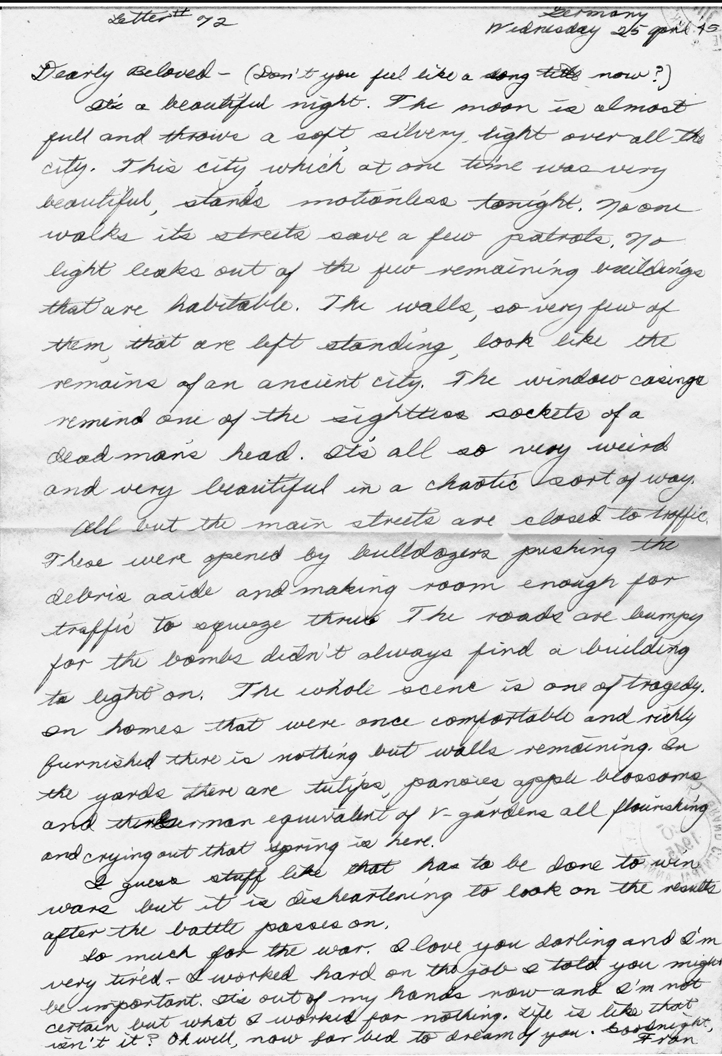 Letter # 72
Germany
Wednesday 25 April 45
Dearly Beloved - (Don't you feel like a song title now?)
It's a beautiful night. The moon is almost
full and throws a soft, silvery light over all the
city. This city which, at one time was very
beautiful, stands motionless tonight. No one
walks its streets save a few patrols. No
light leaks out of the few remaining buildings
that are habitable. The walls, so very few of
them, that are left standing, look like the
remains of an ancient city. The window casings
remind one of the sightless sockets of a
dead man's head. It's all so very weird
and very beautiful in a chaotic sort of way.
All but the main streets are closed to traffic.
These were opened by bulldozers pushing the
debris aside and making room enough for
traffic to squeeze thru. The roads are bumpy
for the bombs didn't always find a building
to light on. The whole scene is one of tragedy.
In homes that were once comfortable and richly
furnished there is nothing but walls remaining. In
the yards there are tulips, pansies apple blossoms
and the German equivalent of V-gardens all flourishing
and crying out that spring is here.
I guess stuff like that has to be done to win
wars but it is disheartening to look on the results
after the battle passes on.
So much for the war. I love you darling and I'm
very tired - I worked hard on the job I told you might
be important. It's out of my hands now and I'm not
certain but what I worked for nothing. Life is like that
isn't it? Oh well, now for bed to dream of you. Goodnight,
Fran